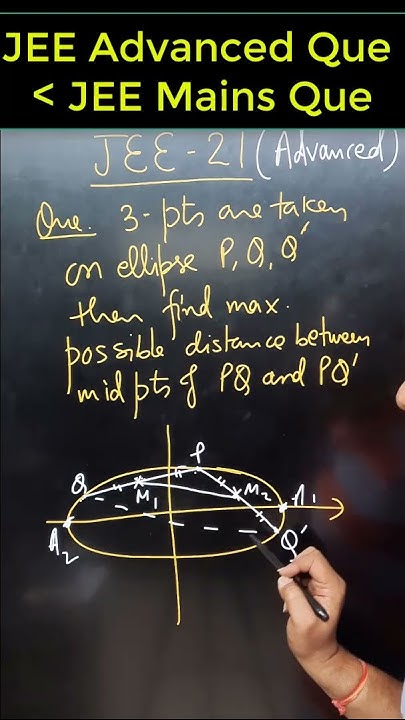 JEE Advanced Que
< JEE Mains Que
JEE-21 (Advanced)
Que. 3-pts are taken
on ellipse P, Q, Q'
then find max.
possible distance between
mid pts of PQ and PQ'
P
Q
M1
M2
A1
A2
Q'